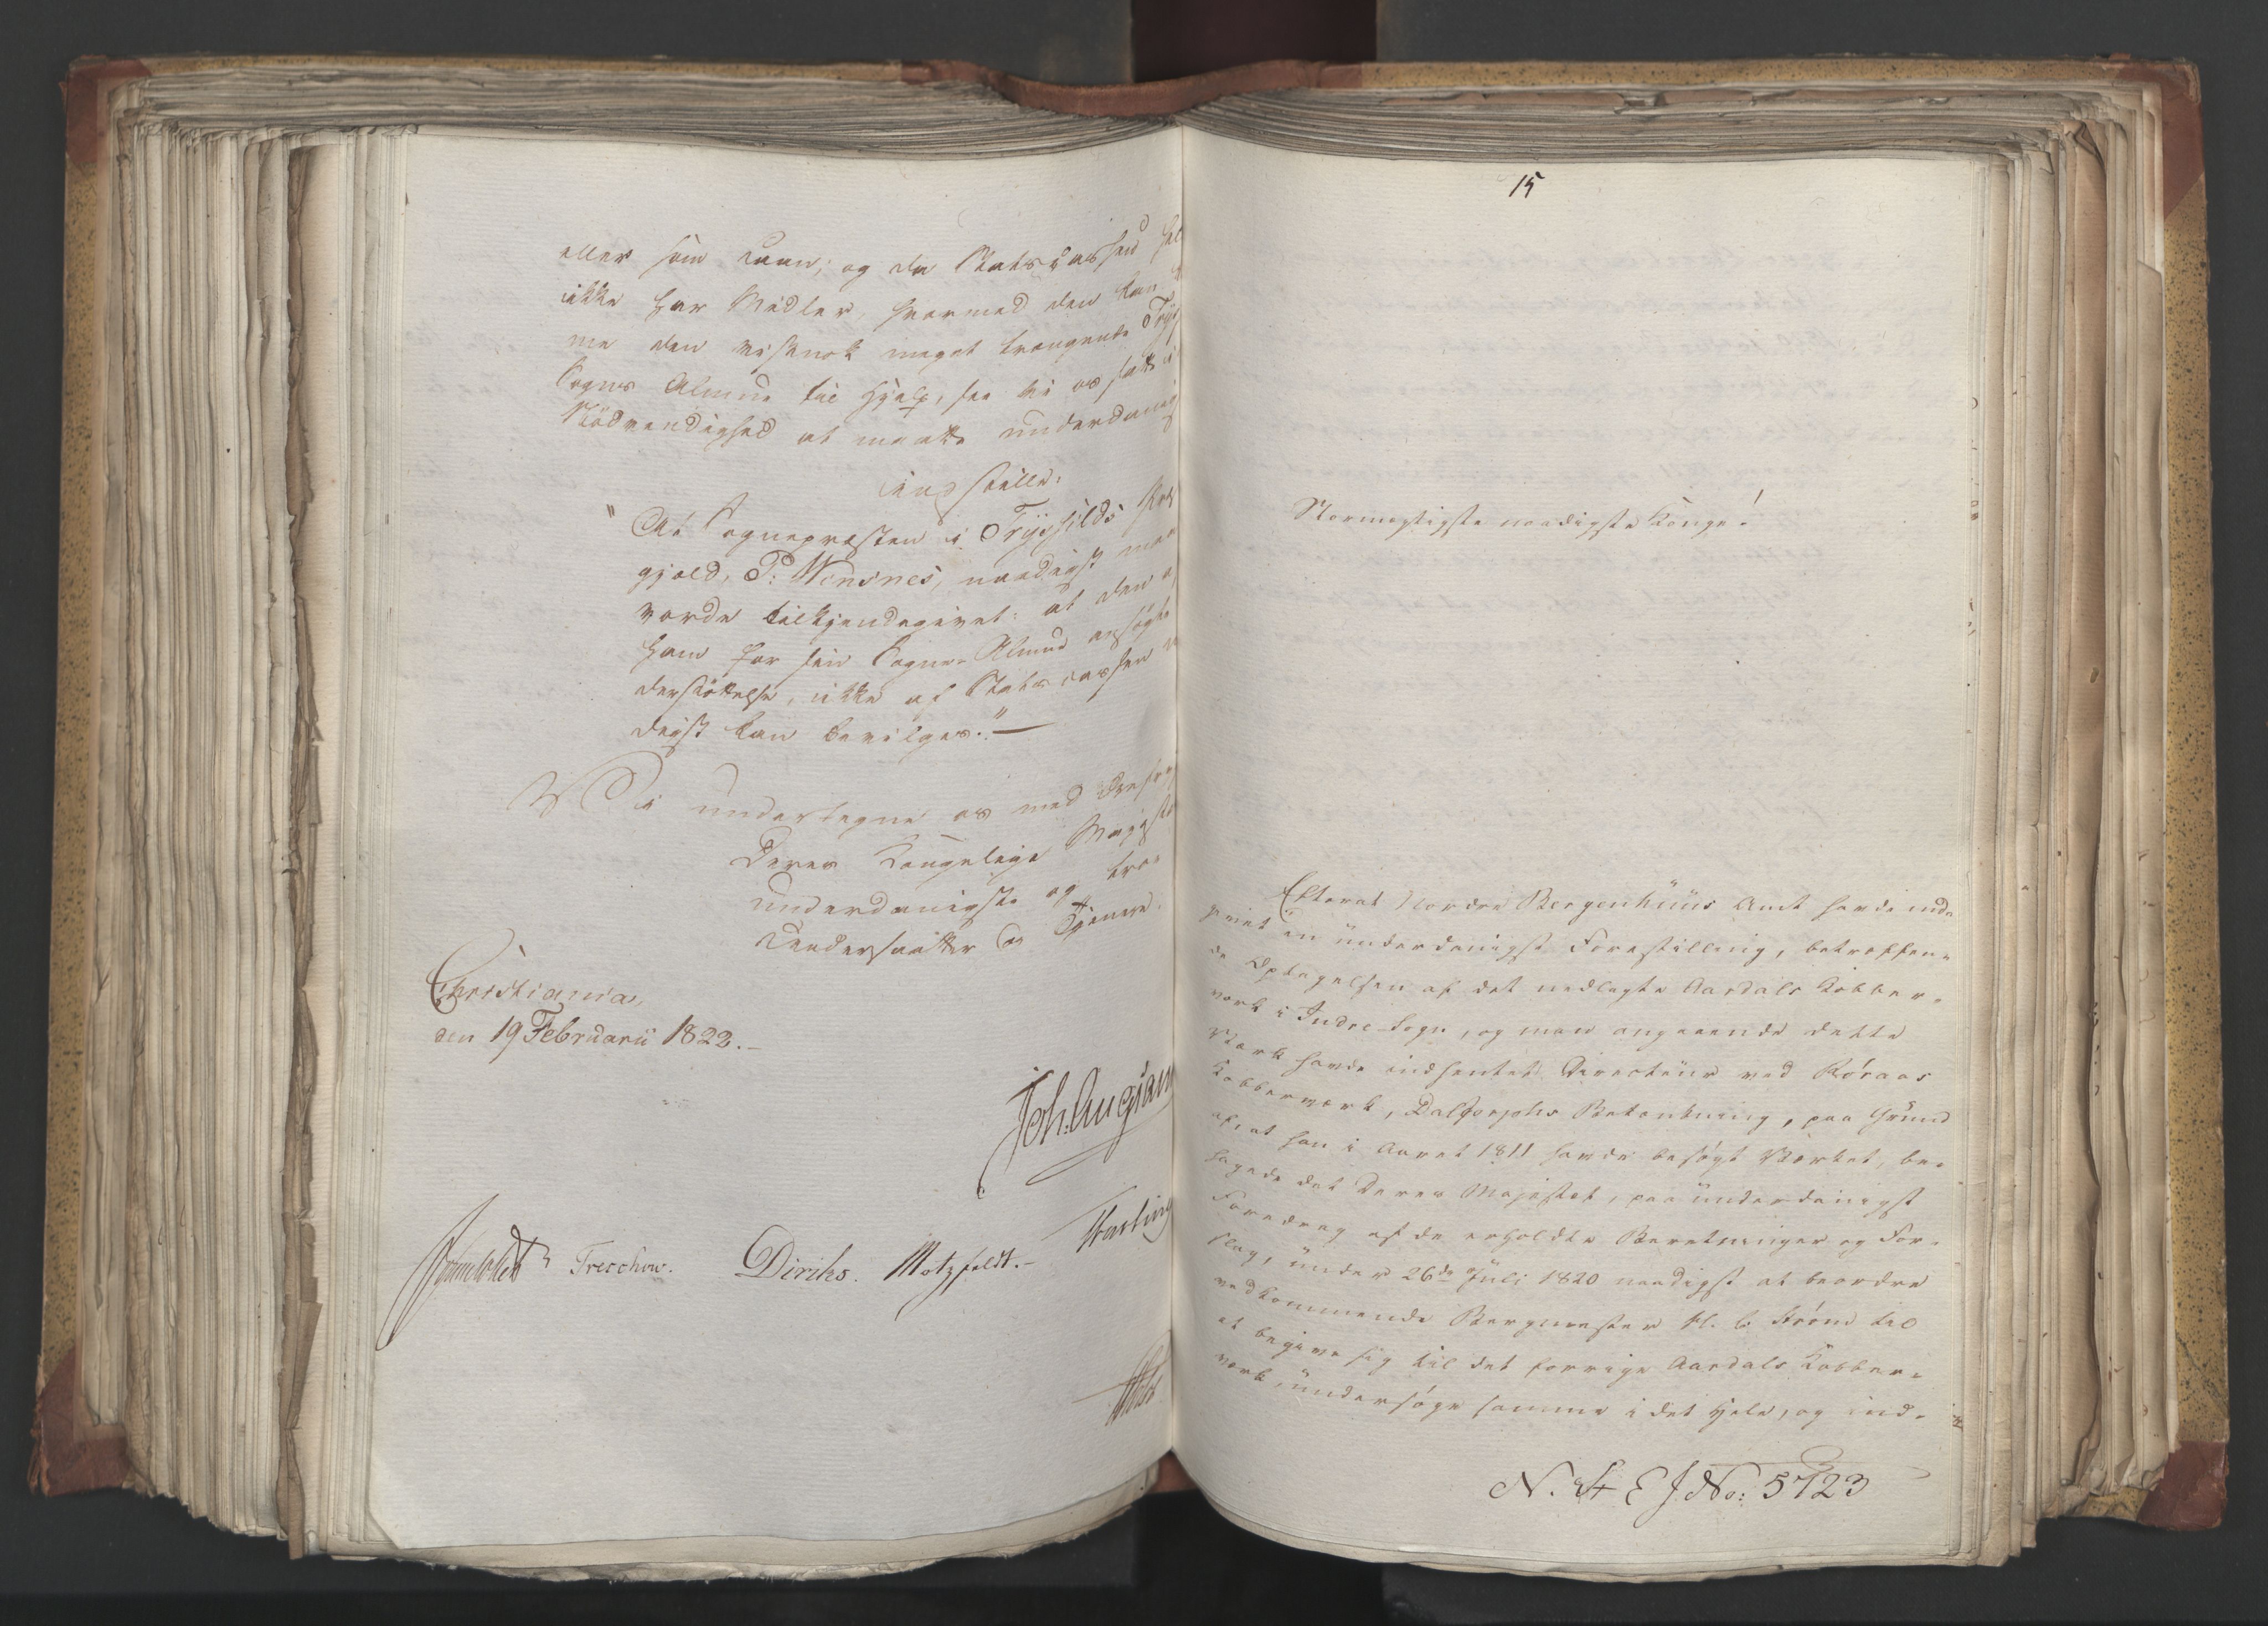 eller som Laan; og da Statscassen sel
ikke har Midler, hvormed den kan
me den vistnok meget trængende Trys
Sogns Almue til Hjelp, see vi os satte i
Nödvendighed at maatte underdanig
indstille:
"At Sognepræsten i Trysfilds Præs
gjeld, P: Wensnes, naadigst maa
vorde tilkjendegivet: at den a
ham for sin Sogne-Almue ansögte
derstöttelse, ikke af Statscassen n
digst kan bevilges."—
Vi undertegne os med Ærefry
Deres Kongelige Majest
underdanigste og troe
Undersaatter og Tjenere.
Christiania,
den 19 Februarii 1822.-
Joh. Aug: San
Sommerhielm Treschow. Diriks. Motzfeldt.- Fasting
Holst
15
Stormægtigste naadigste Konge!
Efterat Nordre Bergenhuus Amt havde inde
givet en underdanigst Forestilling, betreffen-
de Optagelsen af det nedlagte Aardals Kobber-
værk i Indre Sogn, og man angaaende dette
Værk havde indhentet Directeur ved Röraas
Kobberværk, Daldorphs Betænkning, paa Grund
af, at han i Aaret 1811 havde besögt Værket, be-
hagede det Deres Majestæt, paa underdanigst
Foredrag af de erholdte Beretninger og For-
slag, under 26de Juli 1820 naadigst at beordre
vedkommende Bergmester Ström til
at begive sig til det forrige Aardals Kobber-
værk, undersöge samme i det Hele, og ind-
N. 4 E J No: 5723